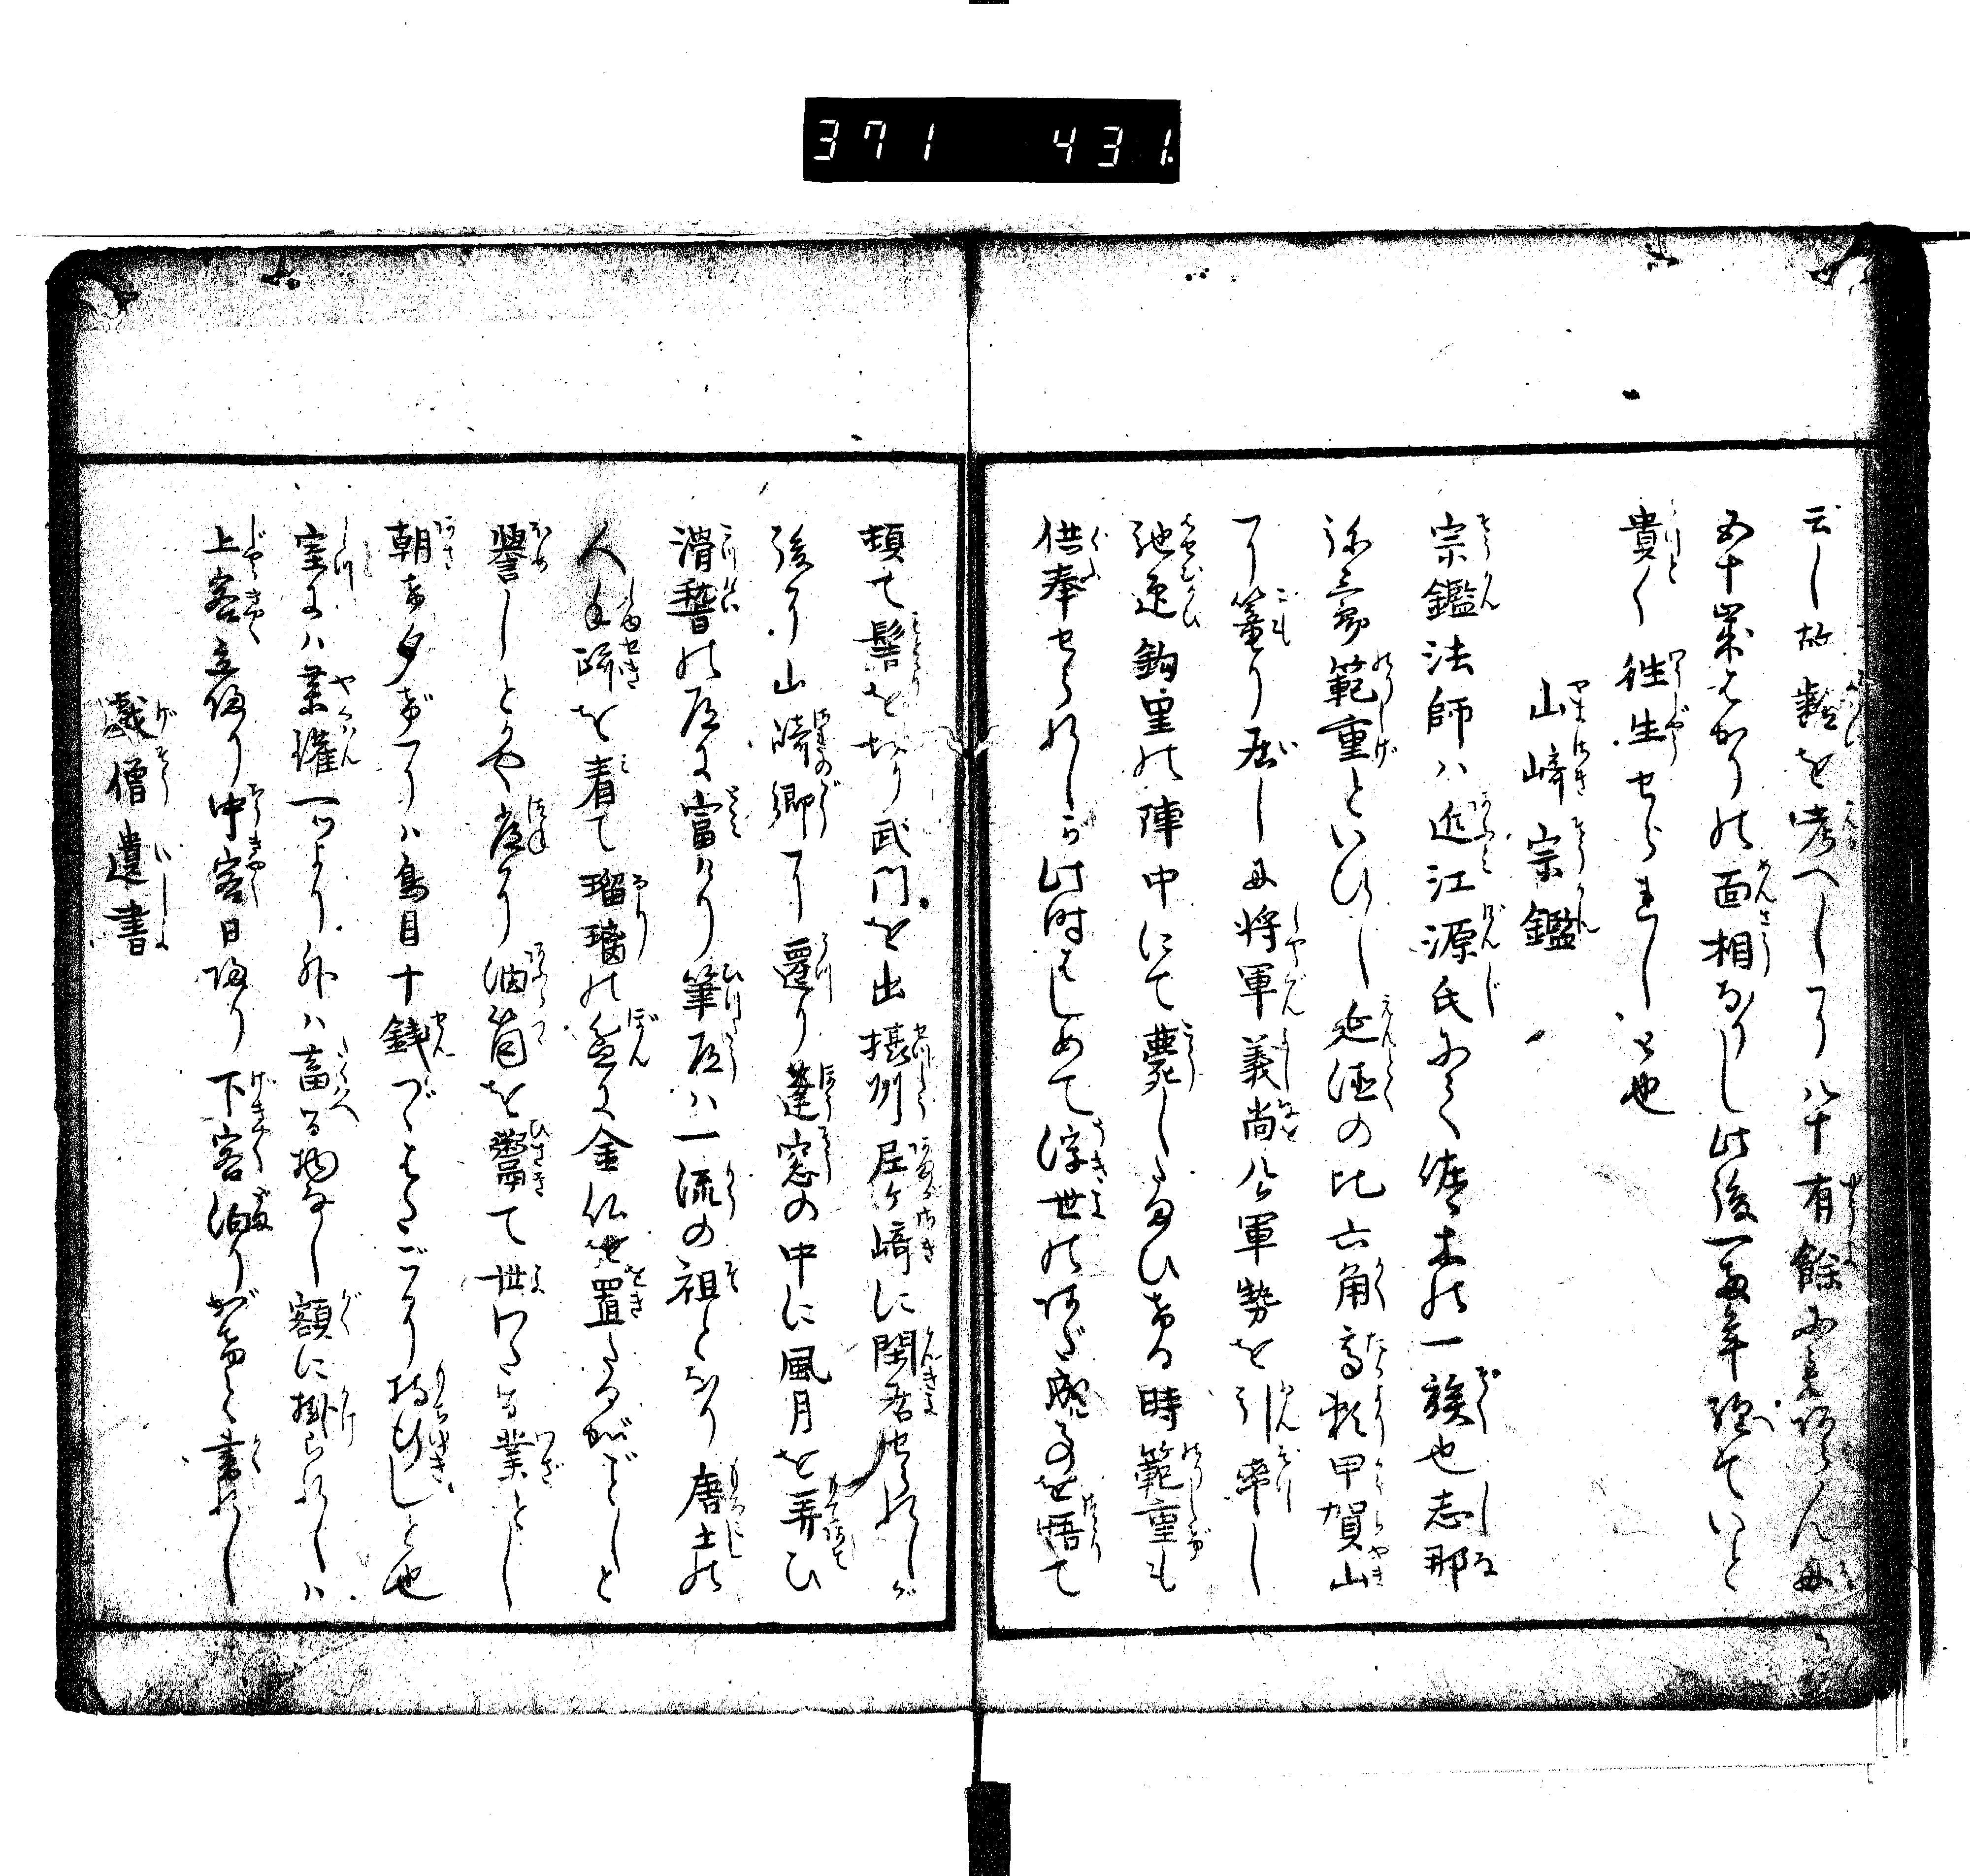 371 431
云し故齢を考へしに八十有餘にもあらんに
五十歳ばかりの面相なりし此後一両年經ていと
貴く往生せられしと也
山崎宗鑑
宗鑑法師ハ近江源氏にて佐々木の一族也志那
弥三郎範重といひし延徳の比六角高頼甲賀山
に篭り居しに将軍義尚公軍勢を引率し
馳迎鈎里の陣中にて薨したまひける時範重も
供奉せられしか此時はじめて浮世のあだ成事を悟て
頓て髻を切り武門を出摂州尼ヶ崎に閑居せられしが
後に山崎郷に遷り蓬窓の中に風月を弄ひ
滑稽の道に富けり筆道ハ一流の祖となり唐土の
人手跡を看て瑠璃の盆に金仏を置たるがごとしと
譽しとかや常に油筒を鬻て世わたる業とし
朝な夕なにハ鳥目十銭づゝはたごに持行しと也
室にハ薬鑵一つより外ハ畜る物なし額に掛られしハ
上客立帰り中客日帰り下客泊りがけと書れし
戯僧遺書